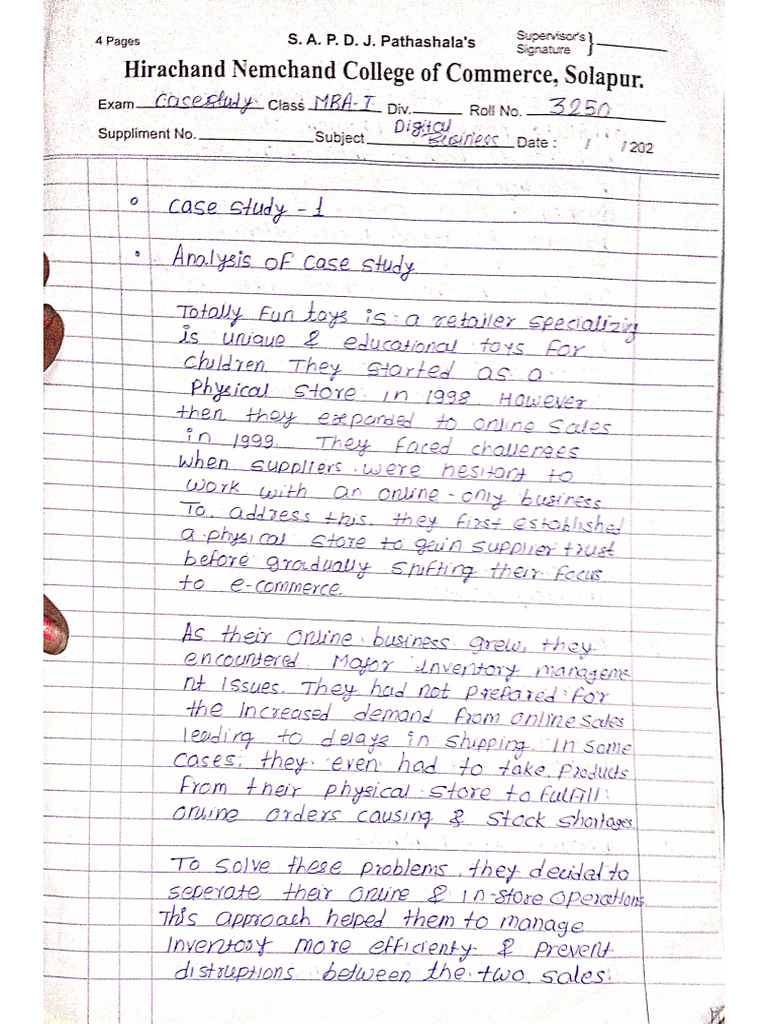 4 Pages
S. A. P. D. J. Pathashala's
Supervisor's
Signature
Hirachand Nemchand College of Commerce, Solapur.
Exam Case study Class MBA-I Div. Roll No. 3250
Suppliment No. Subject Digital Business Date : / / 202
Case study - 1
Analysis of case study
Totally Fun toys is a retailer specializing
is unique & educational toys for
children They started as a
Physical store in 1998. However
then they expanded to online sales
in 1999. They faced challenges
when suppliers were hesitant to
work with an online-only business
To address this, they first established
a physical store to gain supplier trust
before gradually shifting their focus
to e-commerce.
As their online business grew, they
encountered Major inventory manageme
nt issues. They had not prepared for
the increased demand from online sales
leading to delays in shipping. In some
cases, they even had to take products
from their physical store to fulfill
online orders causing & stock shortages.
To solve these problems, they decided to
seperate their online & in-store operations
This approach helped them to manage
inventory more efficienty & prevent
distruptions between the two sales.